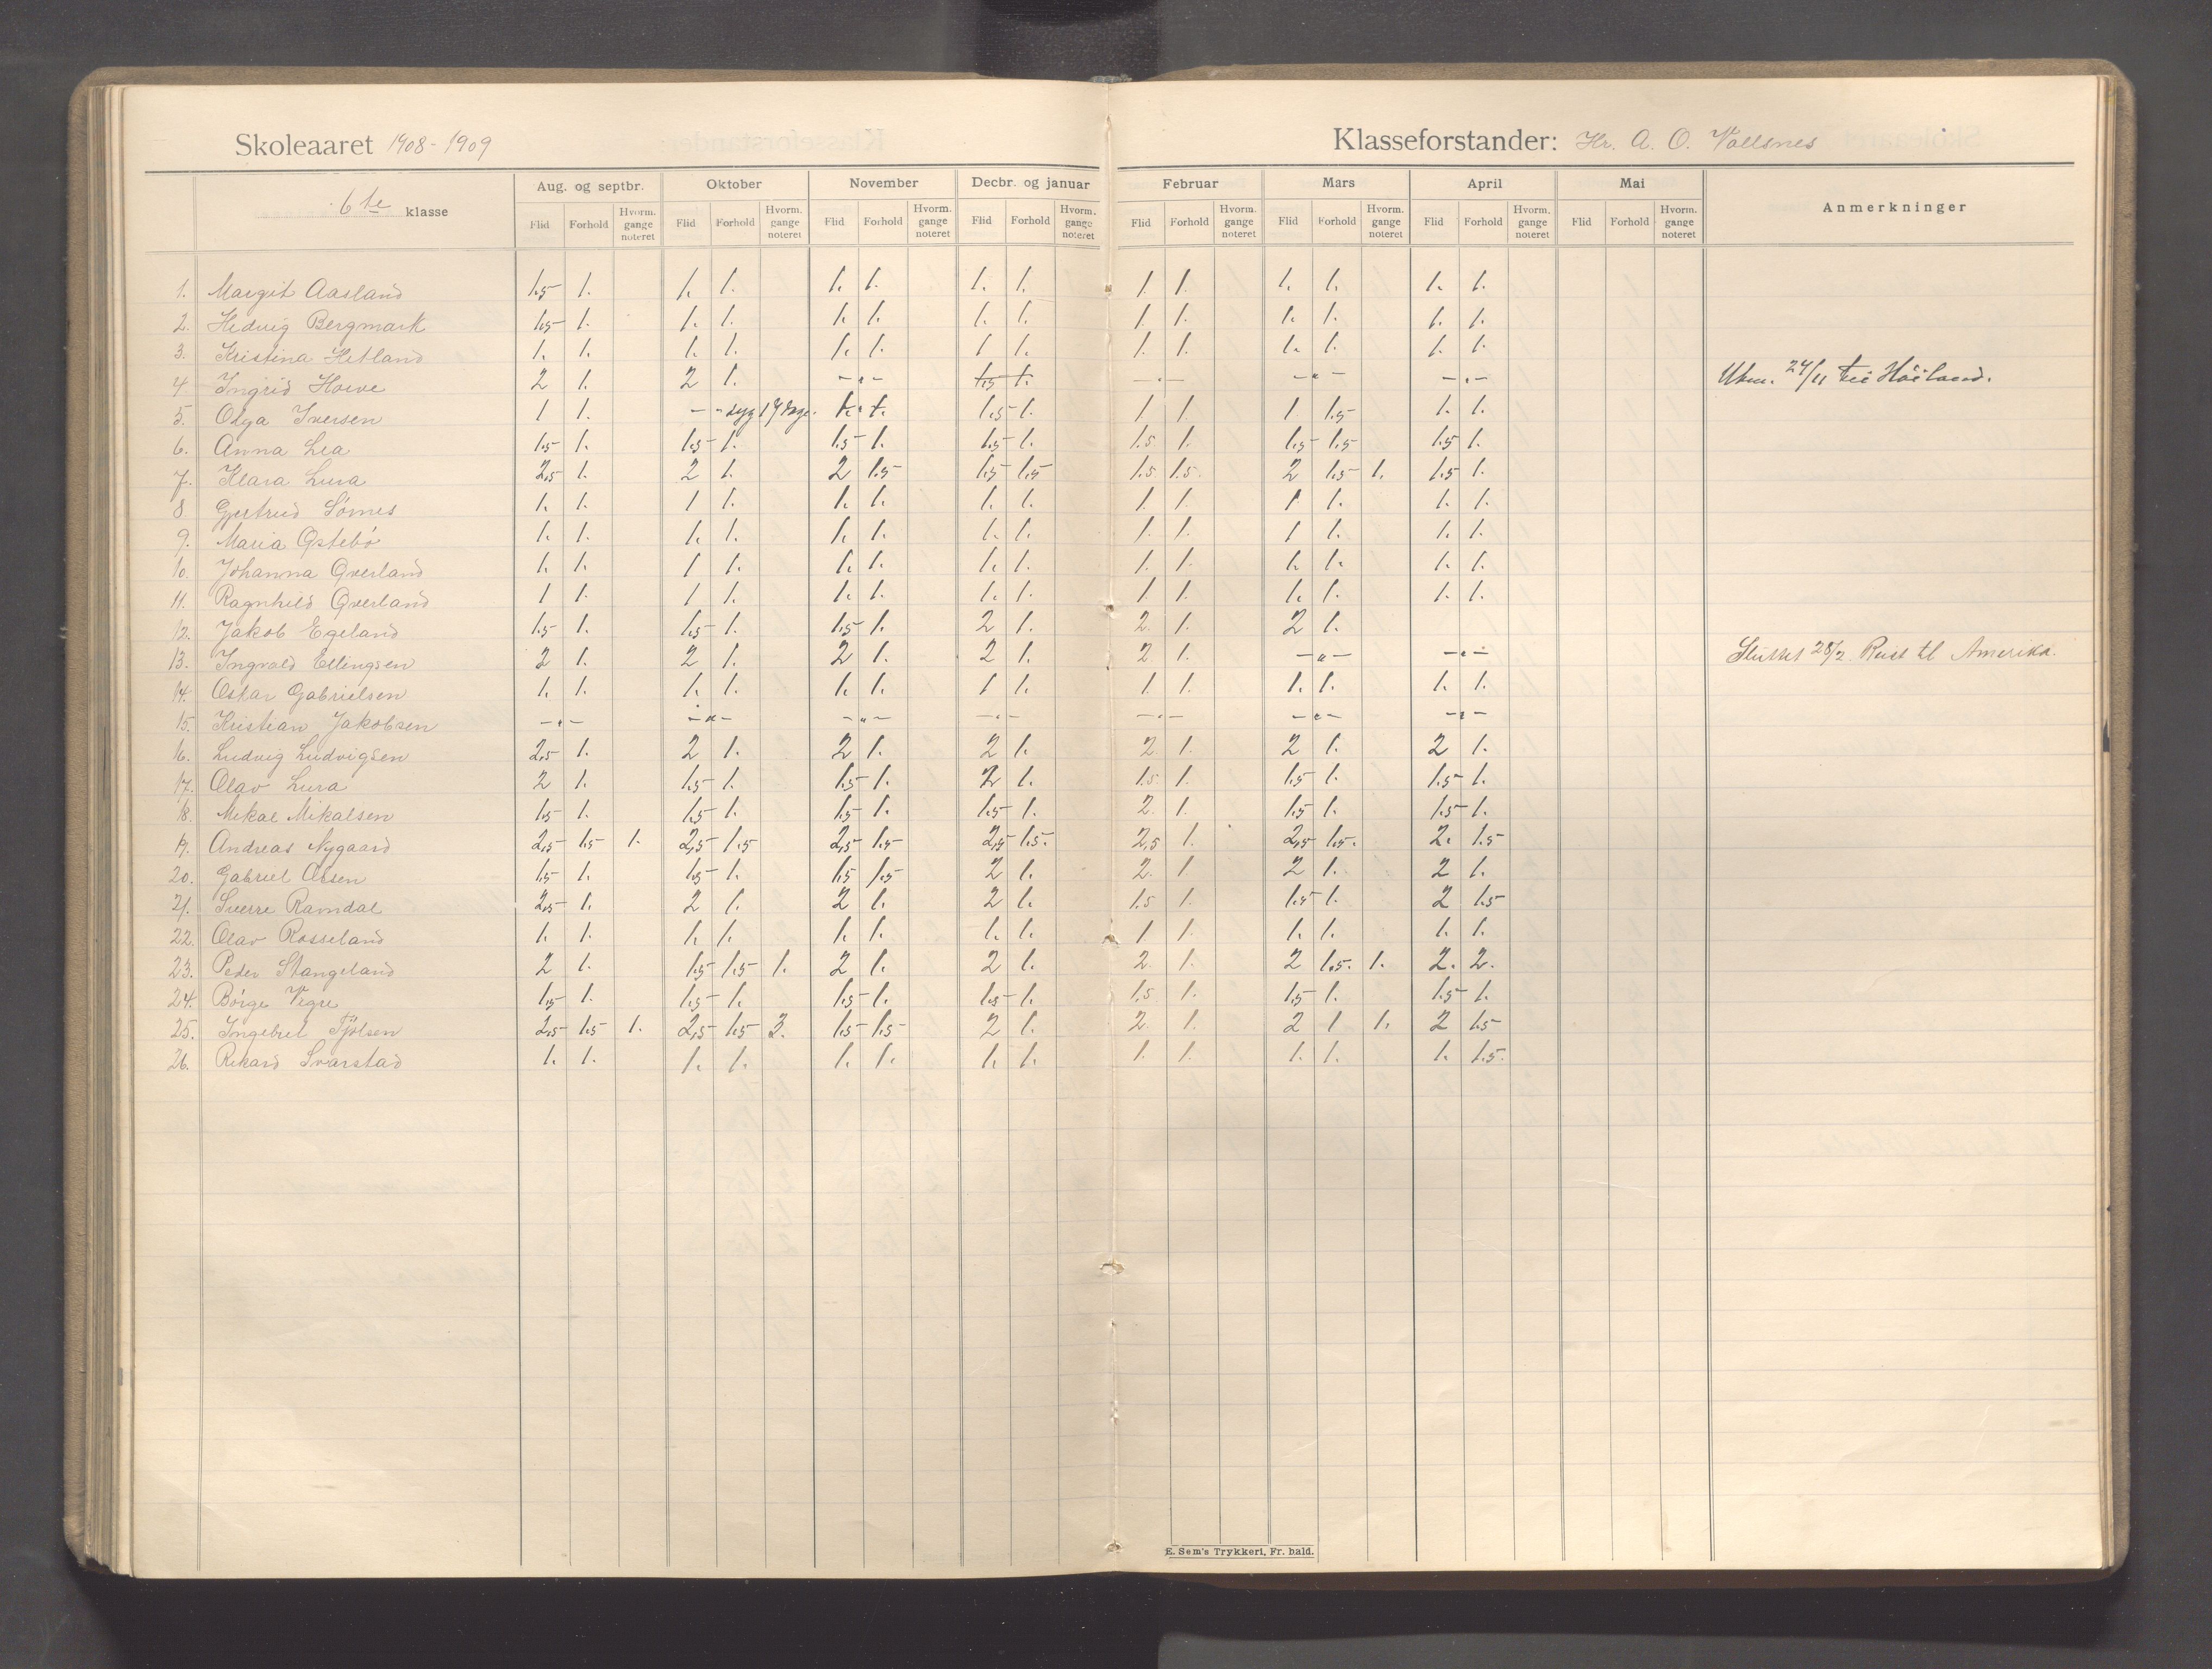 Skoleaaret 1908-1909
Klasseforstander: Hr. A. O. Vallsnes
6te klasse
Aug. og septbr. Oktober November Decbr. og januar Februar Mars April Mai Anmerkninger
Flid Forhold Hvorm. gange noteret Flid Forhold Hvorm. gange noteret Flid Forhold Hvorm. gange noteret Flid Forhold Hvorm. gange noteret Flid Forhold Hvorm. gange noteret Flid Forhold Hvorm. gange noteret Flid Forhold Hvorm. gange noteret Flid Forhold Hvorm. gange noteret
1. Margit Aasland 1.5 1. 1. 1. 1. 1. 1. 1. 1. 1. 1. 1. 1. 1.
2. Hedvig Bergmark 1.5 1. 1. 1. 1. 1. 1. 1. 1. 1. 1. 1. 1. 1.
3. Kristina Hetland 1. 1. 1. 1. 1. 1. 1 1. 1. 1. 1. 1. 1. 1.
4. Ingrid Hoeve 2 1. 2 1. -"- 1.5 1. -"- -"- -"- 24/11 Høiland.
5. Olga Iversen 1 1. - - syg 17 dage. 1. 1. 1.5 1. 1 1. 1 1.5 1. 1.
6. Anna Lea 1.5 1. 1.5 1. 1.5 1. 1.5 1. 1.5 1. 1.5 1.5 1.5 1.
7. Klara Lura 2.5 1. 2 1. 2 1.5 1.5 1.5 1.5 1.5 2 1.5 1. 1.5 1.
8 Gjertrud Sømes 1. 1. 1 1. 1. 1. 1. 1. 1. 1. 1 1. 1. 1.
9. Maria Østebø 1. 1. 1. 1. 1. 1. 1. 1. 1. 1. 1 1. 1. 1.
10. Johanna Øverland 1. 1. 1 1. 1. 1. 1. 1. 1. 1. 1. 1. 1. 1.
11. Ragnhild Øverland 1 1. 1 1. 1. 1. 1. 1. 1 1. 1. 1. 1. 1.
12. Jakob Egeland 1.5 1. 1.5 1. 1.5 1. 2 1. 2. 1. 2 1.
13. Ingvald Ellingsen 2 1. 2 1. 2 1. 2 1. 2 1. -"- -"- Sluttet 28/2 Reist til Amerika.
14. Oskar Gabrielsen 1. 1. 1. 1. 1. 1. 1 1. 1. 1. 1. 1. 1. 1.
15. Kristian Jakobsen -"- -"- -"- -"- -"- -"- -"-
16. Ludvig Ludvigsen 2.5 1. 2 1. 2 1. 2 1. 2. 1. 2 1. 2 1.
17. Olav Lura 2 1. 1.5 1. 1.5 1. 2 1. 1.5 1. 1.5 1. 1.5 1.
18. Mikal Mikalsen 1.5 1. 1.5 1. 1.5 1. 1.5 1. 2. 1. 1.5 1. 1.5 1.
19. Andreas Nygaard 2,5 1.5 1. 2,5 1.5 2,5 1.5 2,5 1.5. 2,5 1. 2,5 1.5. 2. 1.5
20. Gabriel Olsen 1.5 1. 1.5 1. 1.5 1.5 2 1. 2. 1 2 1. 2 1.
21. Sverre Ramdal 2.5 1. 2 1. 2 1. 2 1. 1.5 1. 1.5 1. 2 1.5
22. Olav Rosseland 1. 1. 1. 1. 1. 1. 1. 1. 1 1. 1. 1. 1. 1.
23. Peder Stangeland 2 1. 1.5 1.5 1. 2 1. 2 1. 2. 1. 2 1.5. 1. 2. 2.
24. Børge Vegre 1.5 1. 1.5 1. 1.5 1. 1.5 1. 1.5 1. 1.5 1. 1.5 1.
25. Ingebret Tjølsen 2,5 1.5 1. 2,5 1.5 3. 1.5 1.5 2 1. 2. 1. 2 1 1. 2 1.5
26. Rikard Svarstad 1. 1. 1. 1. 1. 1. 1. 1. 1. 1. 1. 1. 1. 1.5.
E. Sem's Trykkeri, Fr. hald.